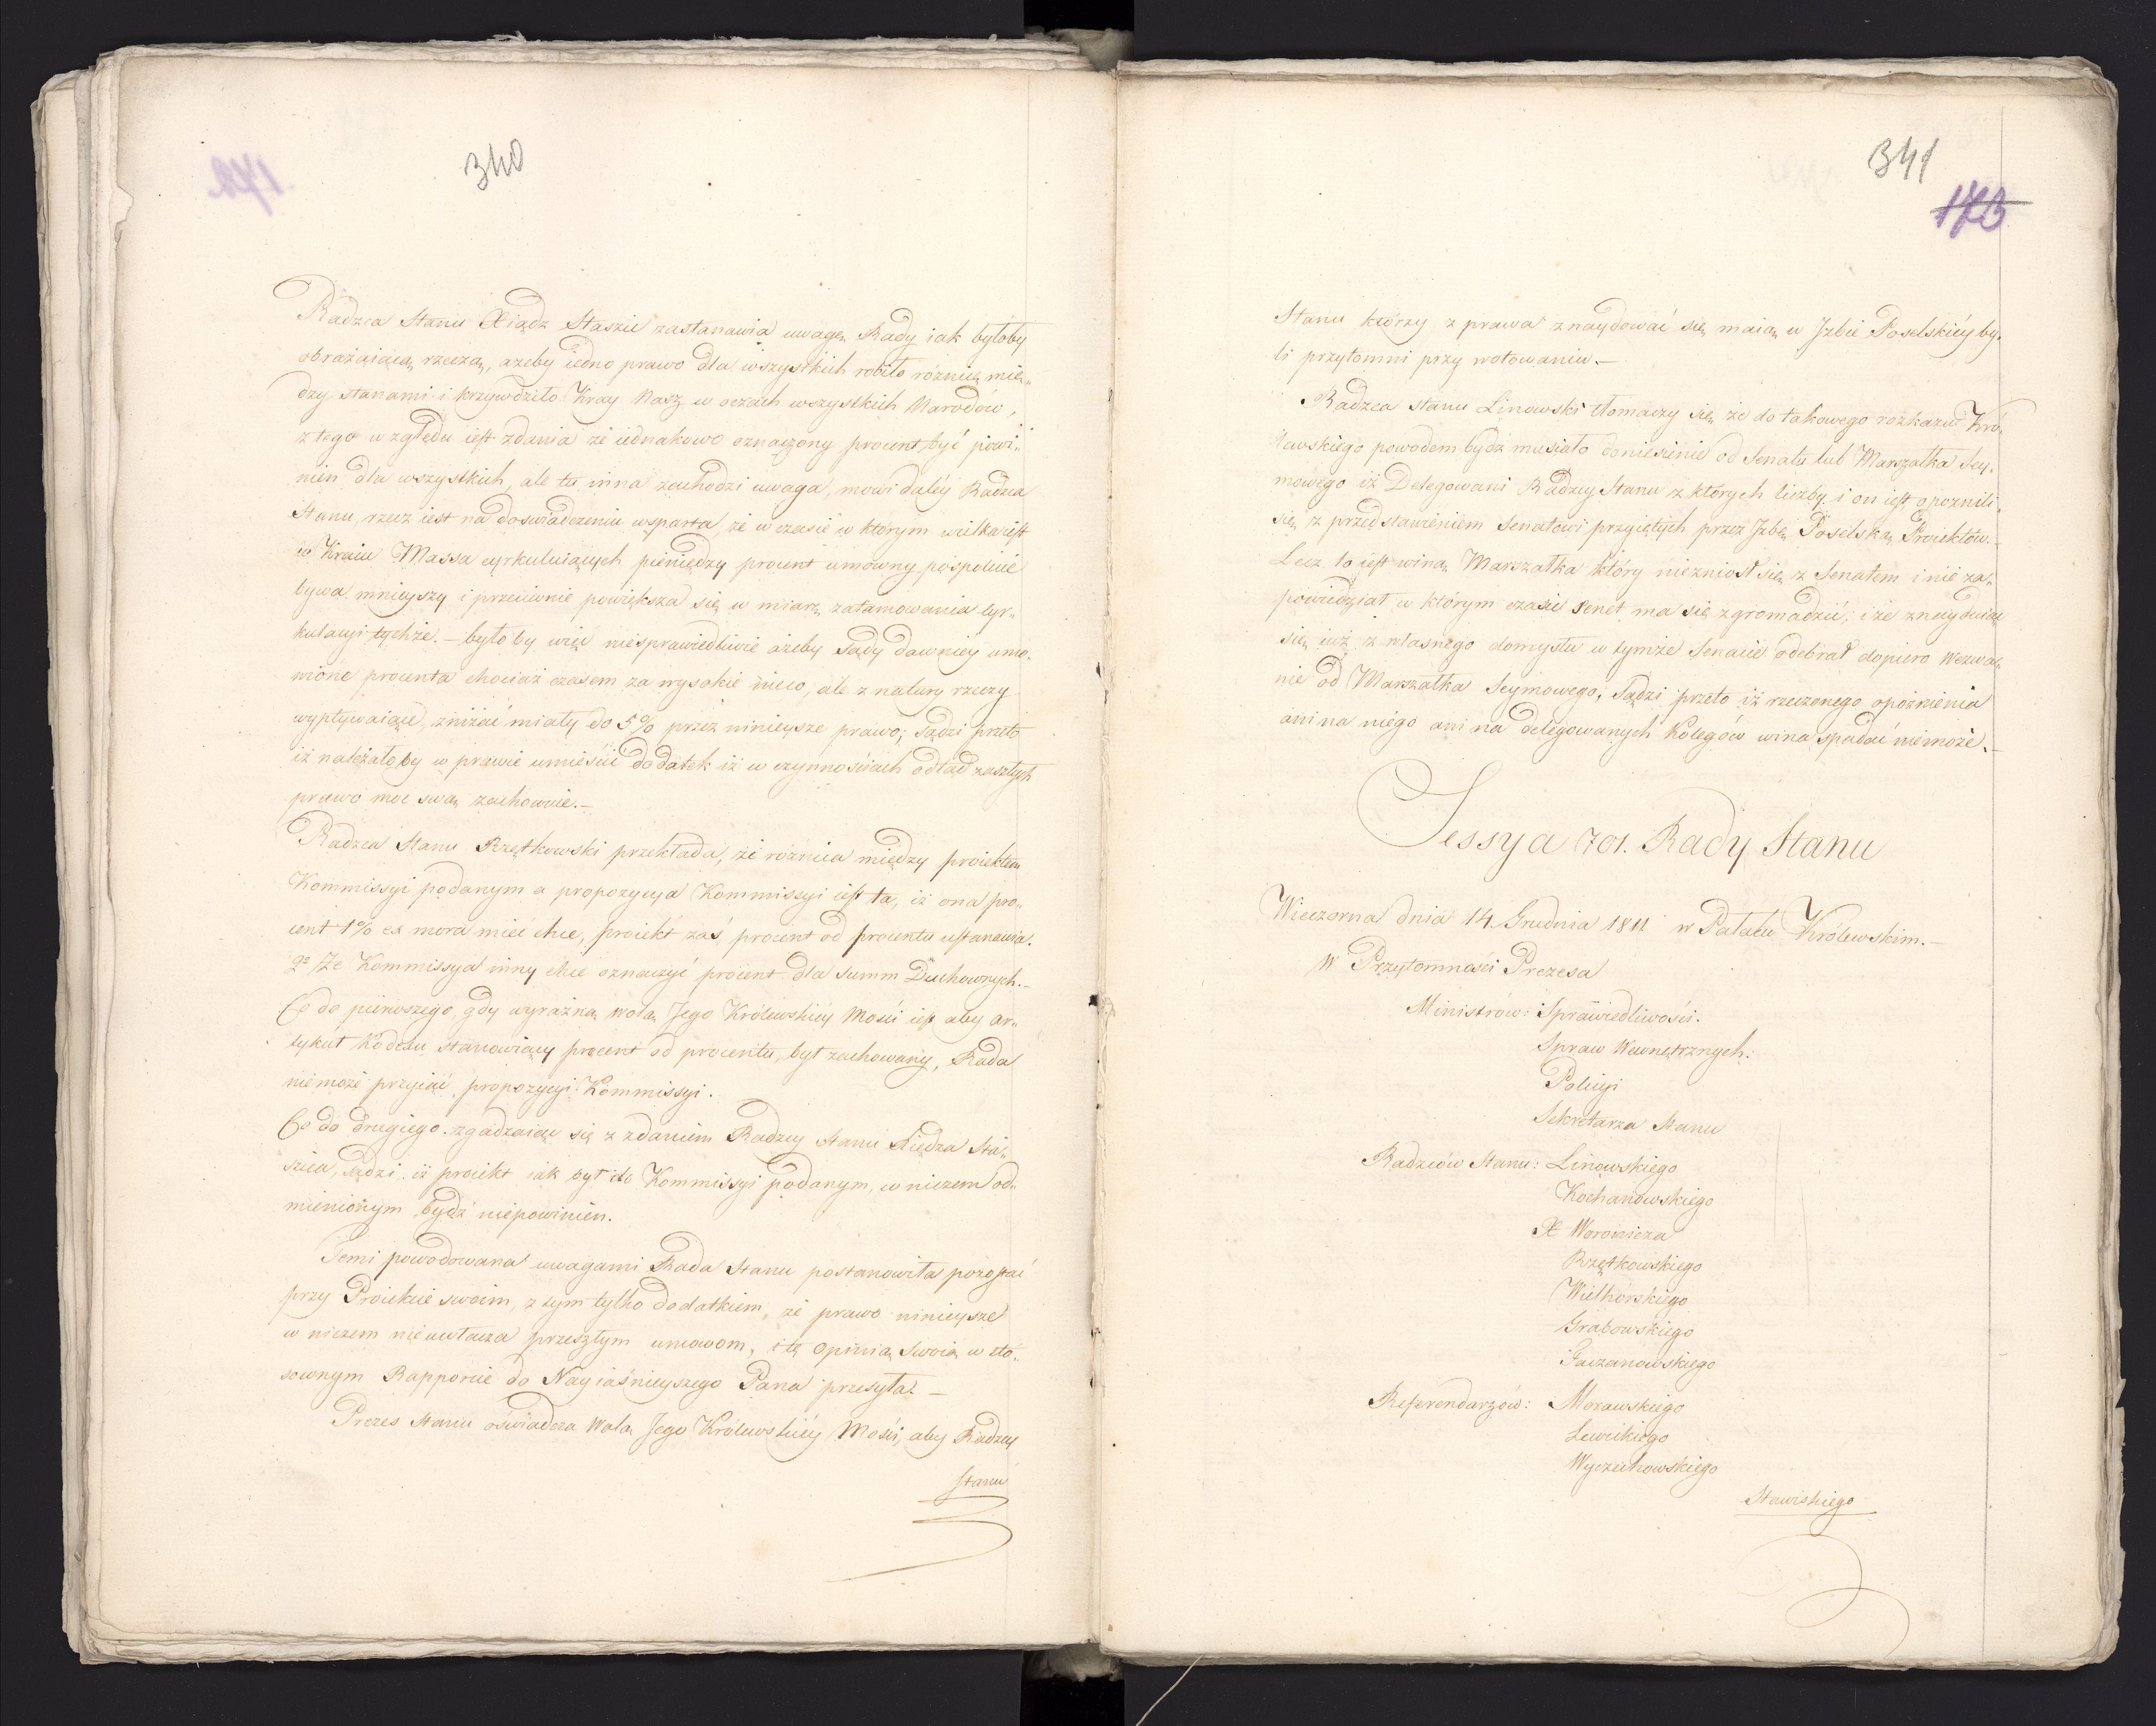 340
Radzca Stanu Xiądz Staszic zastanawia uwagę Rady iak byłoby
obrażaiącą rzeczą, ażeby iedno prawo dla wszystkich robiło różnicę mię„
dzy stanami i krzywdziło Kray Nasz w oczach wszystkich Narodów,
z tego względu iest zdania że iednakowo oznaczony procent być powi„
nien dla wszystkich, ale tu inna zachodzi uwaga, mowi daléy Radzca
Stanu, rzecz iest na doswiadczeniu wsparta, że w czasie w którym wielka iest
w Kraiu Massa cyrkuluiących pieniędzy procent umówny pospolicie
bywa mnieyszy i przeciwnie powiększa się w miarę zatamowania cyr„
kulacyi tychże. – było by więc niesprawiedliwie ażeby Sądy dawniey umó„
wione procenta chociaż czasem za wysokie nieco, ale z natury rzeczy
wypływaiące, zniżać miały do 5% przez ninieysze prawo; Sądzi przeto
iż należałoby w prawie umieścić dodatek iż w czynnościach odtąd zaszłych
prawo moc swą zachowuie. –
Radzca Stanu Rzętkowski przekłada, że różnica między proiektem
Kommissyi podanym a propozycyą Kommissyi iest ta, iż ona pro„
cent 1% ex mora mieć chce, proiekt zaś procent od procentu ustanawia.
2º Że Kommissya inny chce oznaczyć procent dla Summ Duchownych. –
Co do pierwszego, gdy wyraźną wolą Jego Królewskiéy Mości iest aby ar„
tykuł Kodexu stanowiący procent od procentu, był zachowany, Rada
niemoże przyiąć propozycyi Kommissyi.
Co do drugiego zgadzaiąc się z zdaniem Radzcy Stanu Xiędza Sta„
szica, sądzi, iż proiekt iak był do Kommissyi podanym, w niczem od„
mienionym bydź niepowinien.
Temi powodowana uwagami Rada Stanu postanowiła pozostać
przy Proiekcie swoim, z tym tylko dodatkiem, że prawo ninieysze
w niczem nieuwłacza przeszłym umowom, i tę opinią swoią w sto„
sownym Rapporcie do Nayiaśnieyszego Pana przesyła. –
Prezes Stanu oświadcza Wolą Jego Królewskiéy Mości, aby Radzcy
Stanu
341
173
Stanu którzy z prawa znaydować się maią w Jzbie Poselskiéy by„
li przytomni przy wotowaniu. –
Radzca Stanu Linowski tłomaczy się, że do takowego rozkazu Kró„
lewskiego powodem bydź musiało doniesienie od Senatu lub Marszałka Sey„
mowego iż Delegowani Radzcy Stanu z których liczby i on iest opoznili
się z przedstawieniem Senatowi przyiętych przez Jzbę Poselską Proiektów. –
Lecz to iest winą Marszałka który niezniosł się z Senatem i nie za„
powiedział w którym czasie Senat ma się zgromadzić, i że znayduiąc
się iuż z własnego domysłu w tymże Senacie odebrał dopiero Wezwa„
nie od Marszałka Seymowego; Sądzi przeto iż rzeczonego opóźnienia
ani na niego ani na delegowanych Kolegów wina spadać niemoże. –
Sessya 701. Rady Stanu
Wieczorna dnia 14. Grudnia 1811 w Pałacu Królewskim. –
W Przytomności Prezesa
Ministrów: Sprawiedliwości.
Spraw Wewnętrznych:
Policyi
Sekretarza Stanu
Radzców Stanu: Linowskiego
Kochanowskiego
X Woronicza
Rzętkowskiego
Wielhorskiego
Grabowskiego
Gaczanowskiego
Referendarzów: Morawskiego
Lewickiego
Wyczechowskiego
Stawiskiego